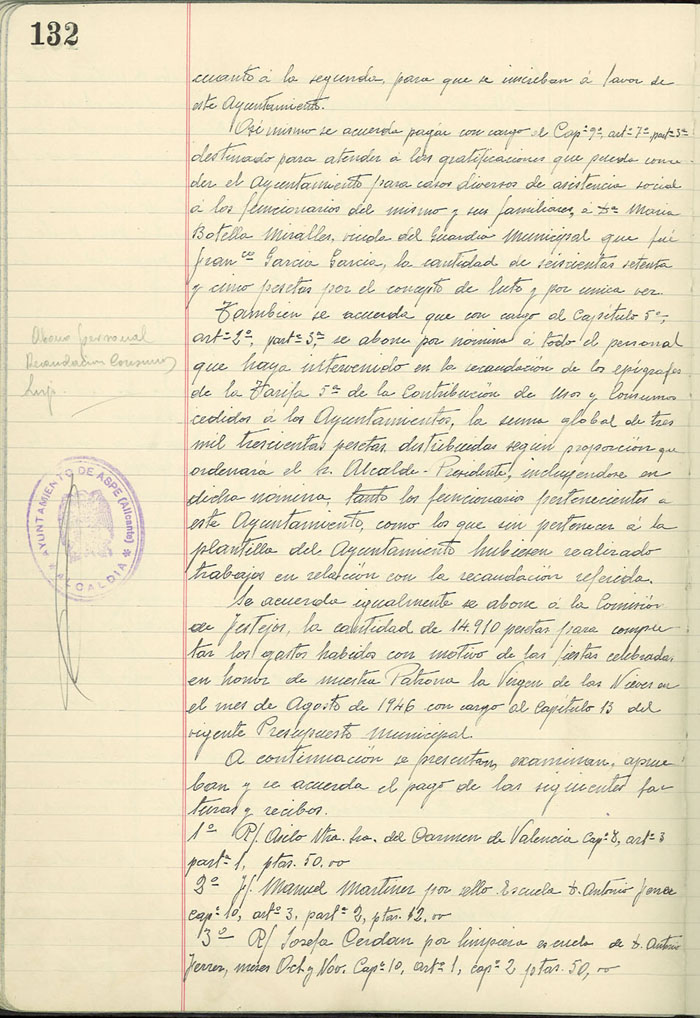 132
cuanto á la segunda, para que se inscriban á favor de
este Ayuntamiento.
Asi mismo se acuerda pagar con cargo al Capº 9º, artº 7º partª 3ª
destinado para atender á las gratificaciones que pueda conce-
der el Ayuntamiento para casos diversos de asistencia social
á los funcionarios del mismo y sus familiares, á Dª Maria
Botella Miralles, viuda del Guardia Municipal que fué
Franco Garcia Garcia, la cantidad de seiscientas setenta
y cinco pesetas por el concepto de luto y por unica vez.
Tambien se acuerda que con cargo al Capítulo 5º,
artº 2º, partª 3ª se abone por nómina á todo el personal
que haya intervenido en la recaudación de los epígrafes
de la Tarifa 5ª de la Contribución de Usos y Consumos
cedidos á los Ayuntamientos, la suma global de tres
mil trescientas pesetas, distribuidas según proporción que
ordenara el Sr. Alcalde-Presidente, incluyendose en
dicha nómina, tanto los funcionarios pertenecientes a
este Ayuntamiento, como los que sin pertenecer á la
plantilla del Ayuntamiento hubiesen realizado
trabajos en relación con la recaudación referida.
Se acuerda igualmente se abone á la Comisión
de Festejos, la cantidad de 14.910 pesetas para comple-
tar los gastos habidos con motivo de las fiestas celebradas
en honor de nuestra Patrona la Virgen de las Nieves en
el mes de Agosto de 1946 con cargo al Capítulo 13 del
vigente Presupuesto municipal.
A continuación se presentan, examinan, aprue-
ban y se acuerda el pago de las siguientes fac-
turas y recibos.
1º R/. Asilo Ntra. Sra. del Carmen de Valencia Capº 8, artº 3
partª 1, ptas. 50,00
2º F/. Manuel Martinez por sello Escuela D. Antonio
capº 10, artº 3, partª 2, ptas. 12,00
3º R/ Josefa Cerdan por limpieza escuela de D. Antonio
Ferrez, meses Oct y Nov. Capº 10, artº 1, capº 2 ptas. 50,00
Abono personal
Recaudacion Consumos
AYUNTAMIENTO DE ASPE (Alicante)
* ALCALDIA *